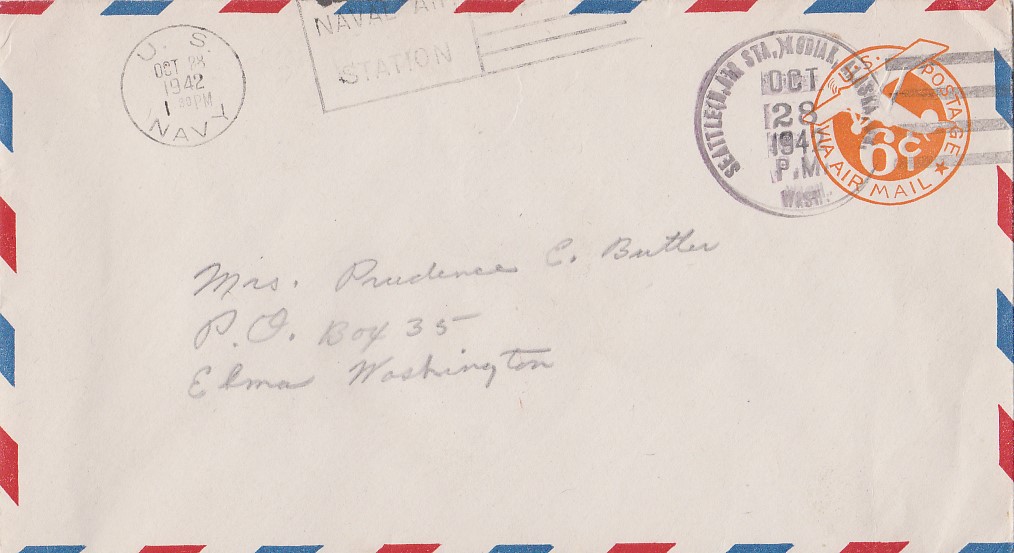 U. S.
OCT 28
1942
1 30 PM
NAVY
NAVAL AIR
STATION
SEATTLE (N. AIR STA.,) KODIAK, ALASKA
OCT
28
1942
P.M.
WASH.
U.S. POSTAGE
6c
VIA AIR MAIL
Mrs. Prudence E. Butler
P.O. Box 35
Elma Washington